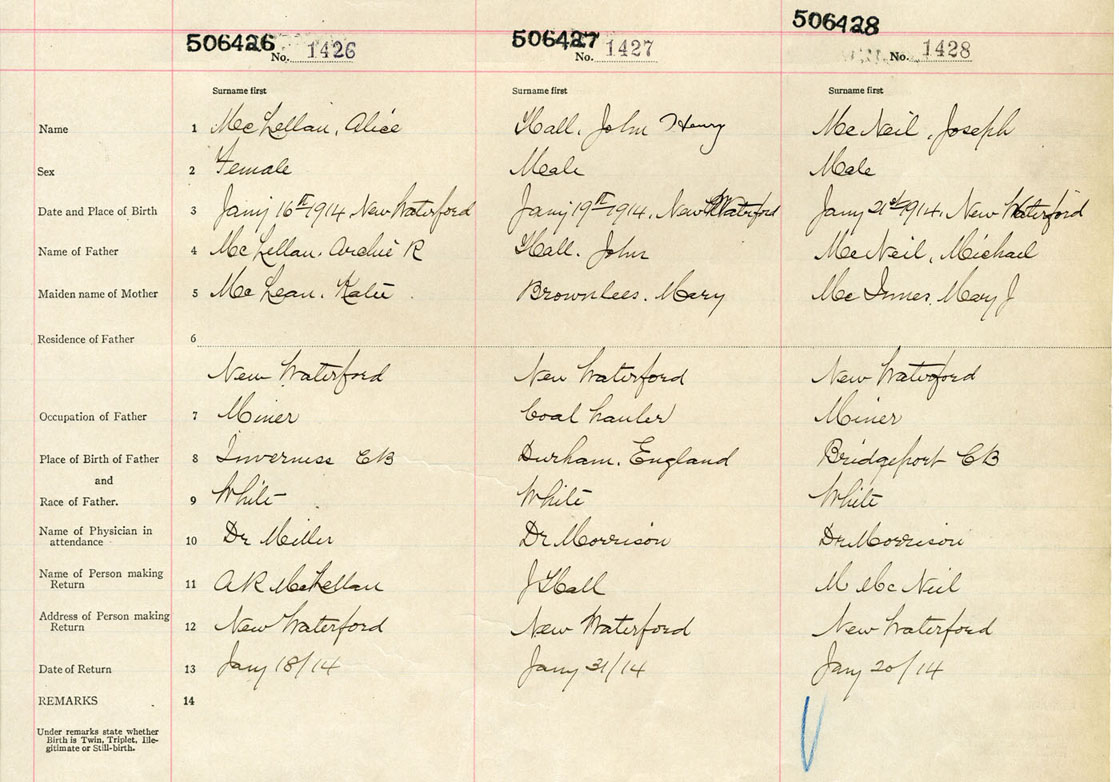 506426 No. 1426 506427 No. 1427 506428 No. 1428
Surname first Surname first Surname first
Name 1 McLellan, Alice Hall, John Henry McNeil, Joseph
Sex 2 Female Male Male
Date and Place of Birth 3 Jany 16th 1914, New Waterford Jany 19th 1914, New Waterford Jany 21st 1914, New Waterford
Name of Father 4 McLellan, Archie R Hall, John McNeil, Michael
Maiden name of Mother 5 McLean, Katie Brownlees, Mary McInnes, Mary J
Residence of Father 6
New Waterford New Waterford New Waterford
Occupation of Father 7 Miner Coal hauler Miner
Place of Birth of Father 8 Inverness CB Durham, England Bridgeport CB
and
Race of Father. 9 White White White
Name of Physician in
attendance 10 Dr Miller Dr Morrison Dr Morrison
Name of Person making
Return 11 A R McLellan J Hall M McNeil
Address of Person making
Return 12 New Waterford New Waterford New Waterford
Date of Return 13 Jany 18/14 Jany 31/14 Jany 20/14
REMARKS 14
Under remarks state whether
Birth is Twin, Triplet, Ille-
gitimate or Still-birth.